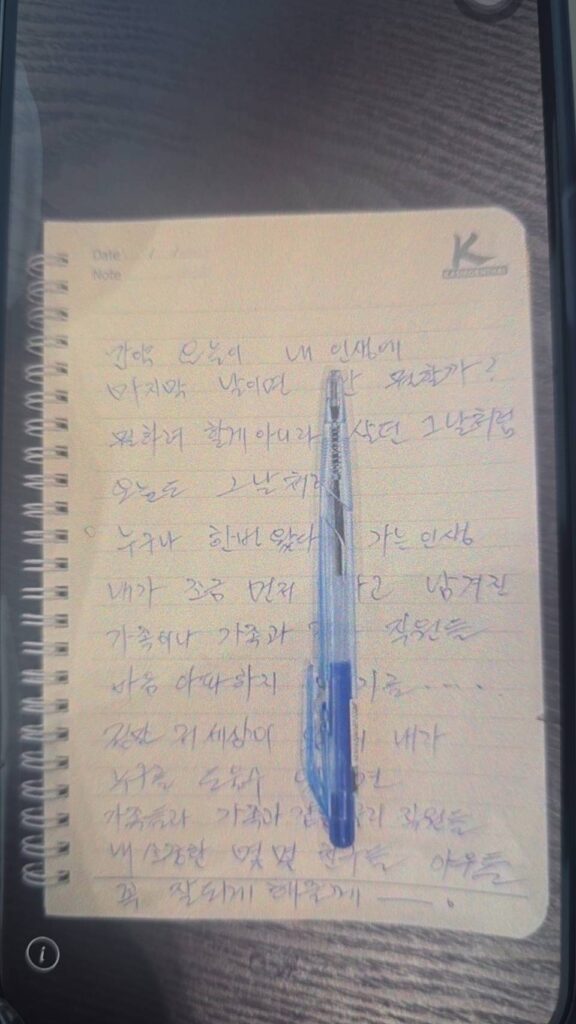 Date / /
Note
K
만약 오늘이 내 인생에
마지막 날이면 난 뭐할까?
뭐하려 할게 아니라 살던 그날처럼
오늘도 그날처럼
누구나 한번 왔다 가는 인생
내가 조금 먼저 가고 남겨진
가족이나 가족과 직원들
마음 아파하지 않기를.....
정말 저 세상이 있어 내가
누구를 도울수 있다면
가족들과 가족과 직원들
내 소중한 몇 몇 친구들 아우들
꼭 잘되게 해줄게 ___.